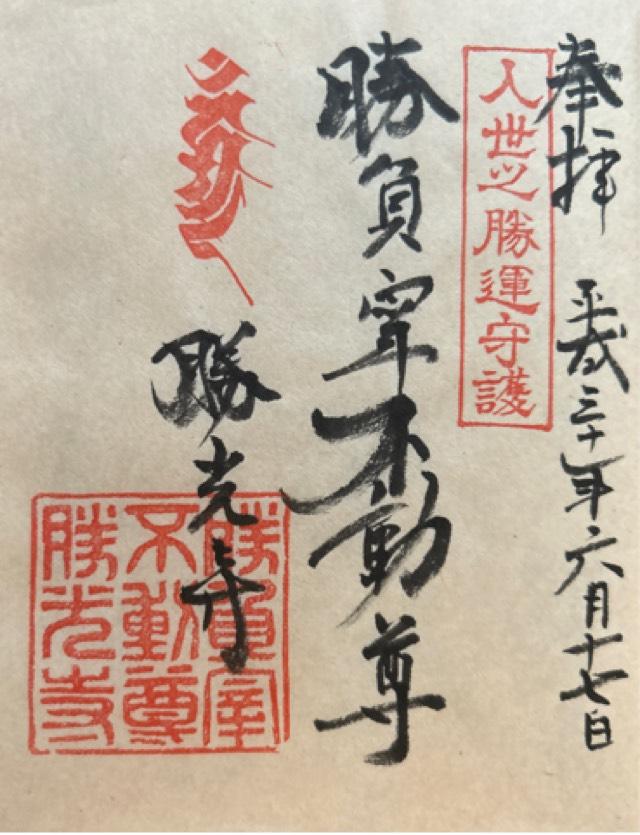 奉拝 平成三十年六月十七日
人世之勝運守護
勝負宰不動尊
勝光寺
勝負宰
不動尊
勝光寺